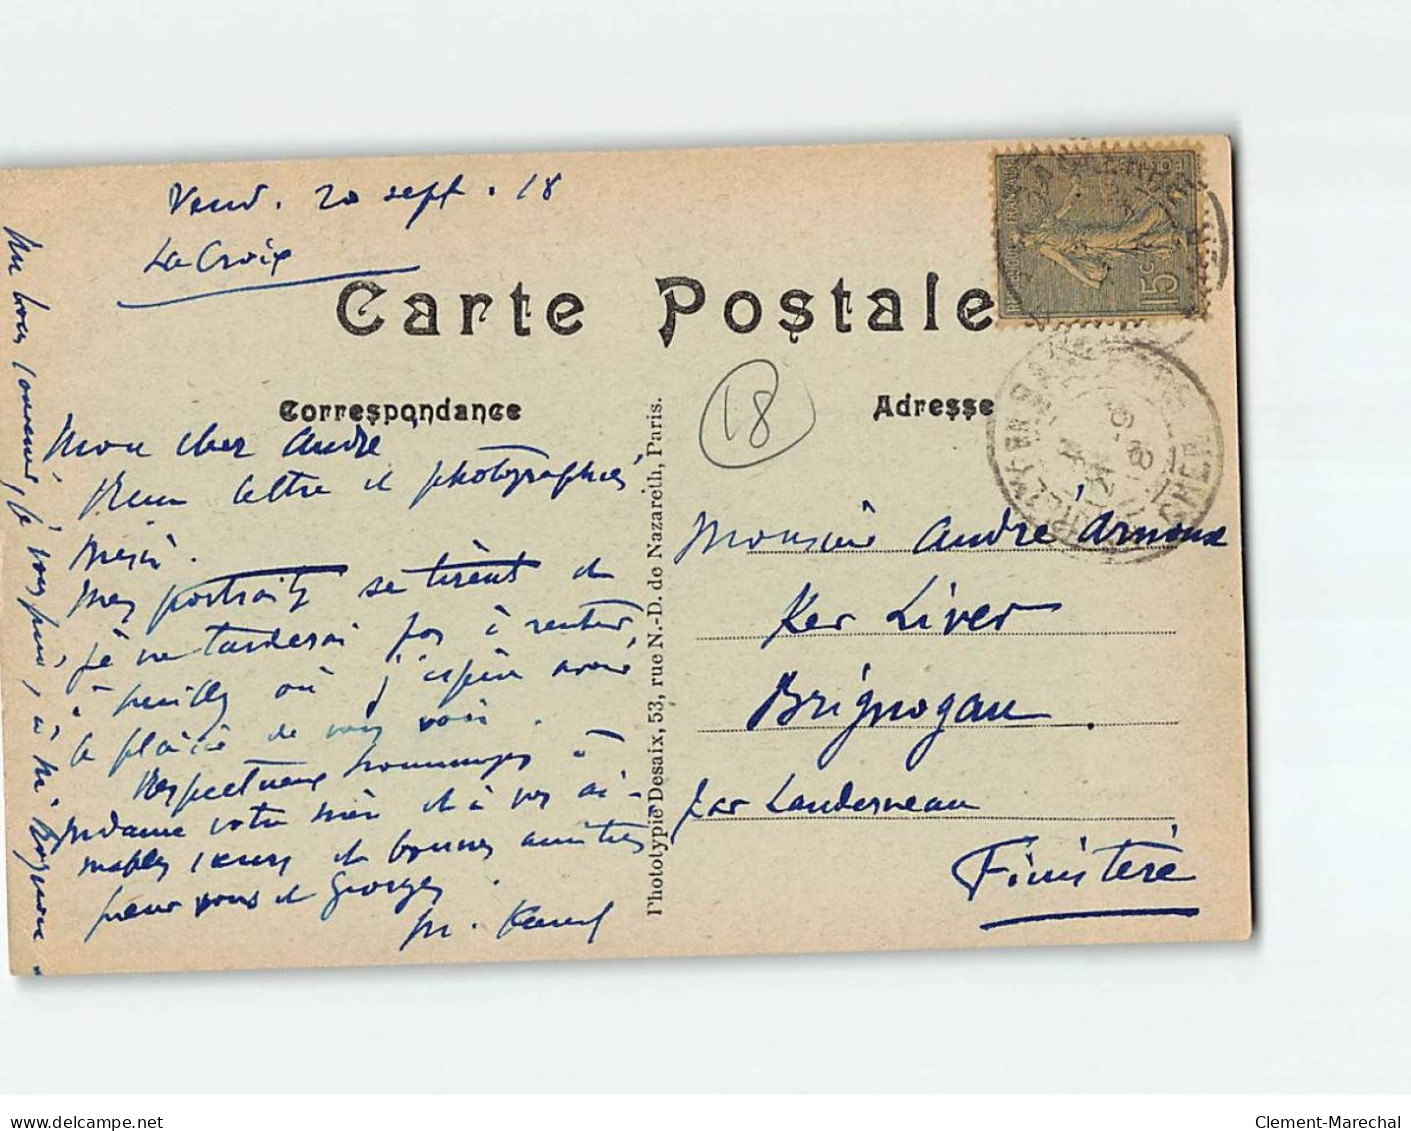 Vend. 20 sept. 18
La Croix
Carte Postale
Correspondance
Adresse
15c
18
Mon cher André
Reçu lettre et photographies
Merci.
Mes portraits se tirent et
je ne tarderai pas à rentrer
à où j'espère avoir
le plaisir de vous voir.
Respectueux hommages à
Madame votre mère et à vos ai-
mables sœurs et bonnes amitiés
pour vous et Georges.
M.
Mon bon souvenir, je vous prie, à M.
Phototypie Desaix, 53, rue N.-D. de Nazareth, Paris.
Monsieur André Arnoux
Ker Liver
Brignogan.
par Landerneau
Finistère
Clement-Marechal